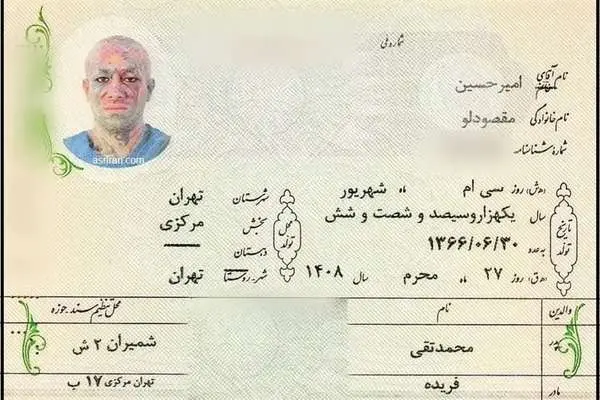 شماره ملی
نام آقای امیرحسین
نام خانوادگی مقصودلو
شماره شناسنامه
asriran.com
تاریخ تولد
هـ.ش: روز سی ام ماه شهریور
سال یکهزار و سیصد و شصت و شش
به عدد ۱۳۶۶/۰۶/۳۰
هـ.ق: روز ۲۷ ماه محرم سال ۱۴۰۸
محل تولد
شهرستان تهران
بخش مرکزی
دهستان
شهر-روستا تهران
والدین نام محل تنظیم سند: حوزه
پدر محمدتقی شمیران ۲ ش
مادر فریده تهران مرکزی ۱۷ ب